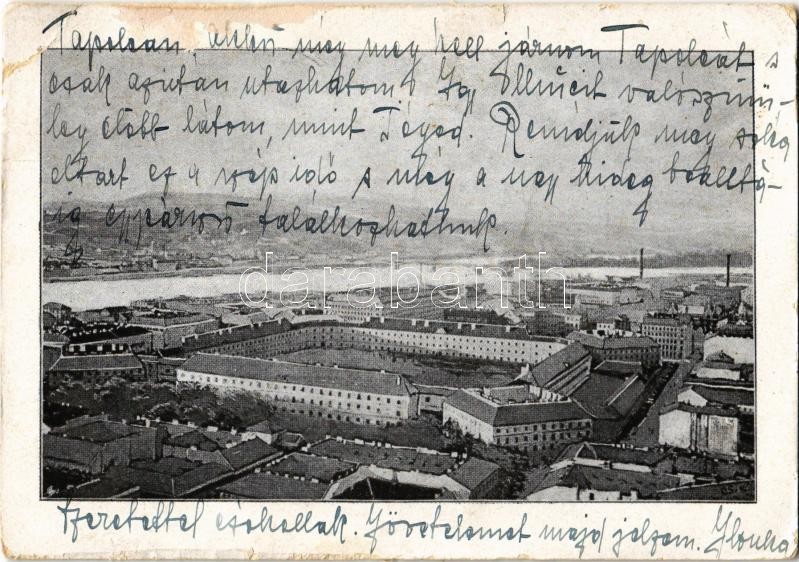 Tapolcan, utkö még meg kell járnom Tapolcát s
csak azután utazhatom. Így Ollncit valószinü-
leg előbb látom, mint Téged. Reméljük meg soka
eltart ez a szép idő s még a nagy hideg beálltá-
ig egypárszó találkozhatunk.
darabanth
Szeretettel csókollak. Jövetelemet majd jelzem. Ilonka